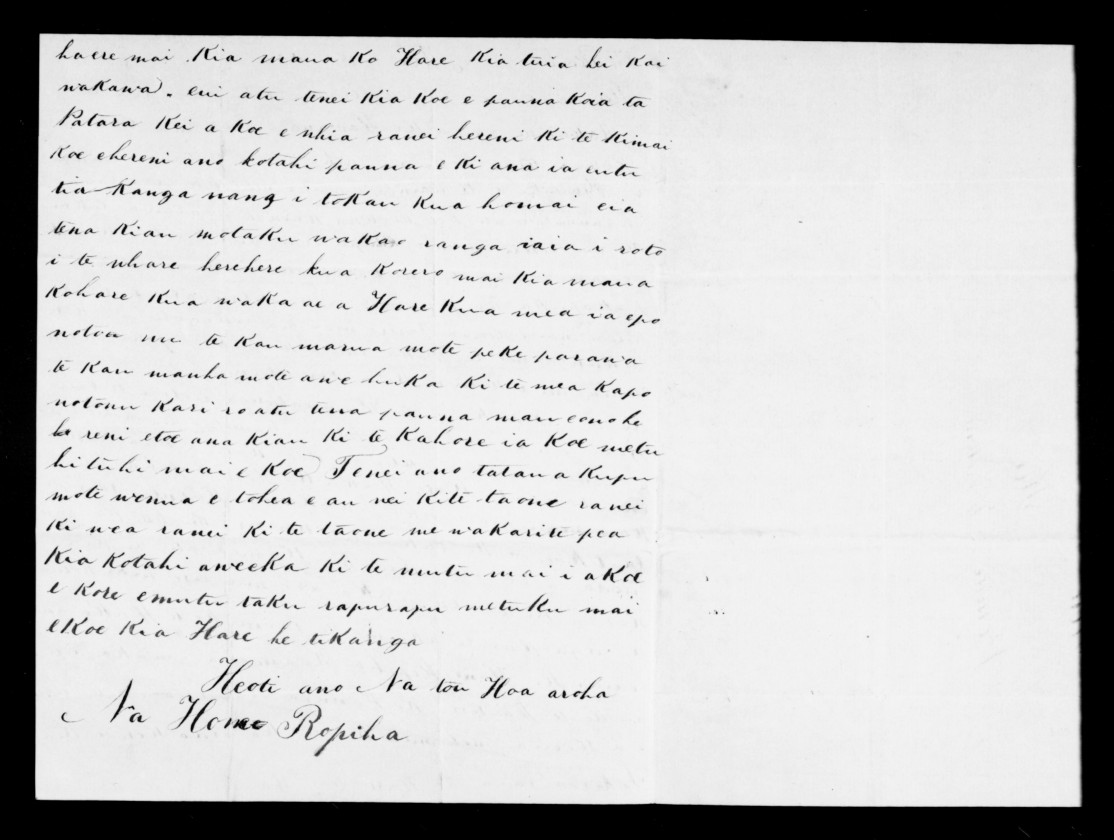 haere mai Kia maua Ko Hare Kia tuia hei Kai
wakawa. eui atu tenei Kia Koe e pauna Koia ta
Patara Kei a Koe e nhia ranei hereni Ki te Kimai
Koe ehereni ano kotahi pauna e Ki ana ia eutu
tia Kanga nana i tokau Kua homai eia
tena Kiau motaku waka ranga iaia i roto
i te whare herehere kua Korero mai Kia maua
Kohare Kua waka ae a Hare Kua mea ia epo
notou nu te Kau marua mote peke parawa
te Kau manha mote awe huka Ki te mea Kapo
notonu Kari roatu tena pauna mau eono he
he reni etoe ana Kiau Ki te Kahore ia Koe metu
hituhi mai e Koe Tenei ano tatau a Kupu
mote wenua e tohea e au nei Kite taone ranei
Ki wea ranei Ki te taone me wakarite pea
Kia Kotahi aweeka Ki te mutu mai i a Koe
e Kore emutu taku rapurapu metuku mai
eKoe Kia Hare he tikanga
Heoti ano Na tou Hoa aroha
Na Home Ropiha